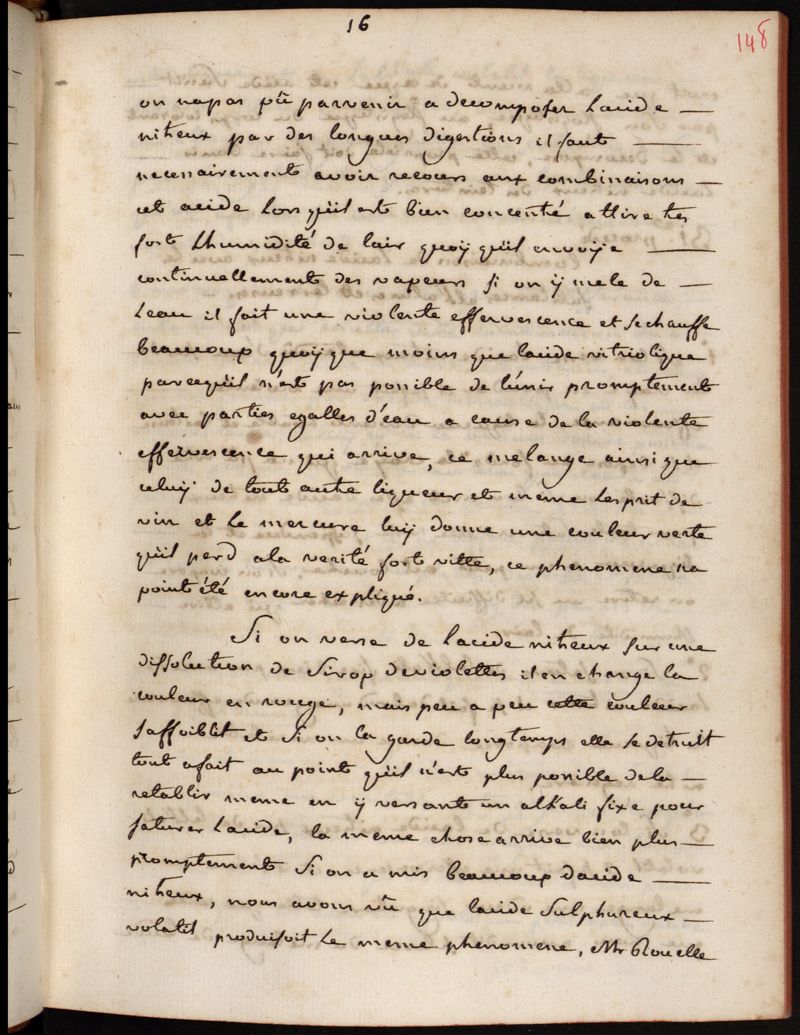 16
148
on na pas pû parvenir a decomposer Lacide
nitreux par des longues digestions il faut
necessairement avoir recours aux combinaisons
cet acide Lorsqu'il est bien concentré attire tres
fort Lhumidité de lair quoÿ qu'il envoÿe
continuellement des vapeurs Si on ÿ mele de
Leau il fait une violente effervescence et Sechauffe
beaucoup quoÿque moins que lacide vitriolique
parcequ'il n'est pas possible de lúnir promptement
avec parties egalles d'eau a cause de la violente
effervescence qui arrive, ce melange ainsi que
celuÿ de tout autre liqueur et meme Lesprit de
vin et Le mercure luÿ donne une couleur verte
qu'il perd ala verité fort vitte, ce phenomene na
point été encore expliqué.
Si on verse de Lacide nitreux sur une
dissolution de Sirop deviolettes il en change la
couleur en rouge, mais peu a peu cette couleur
Saffoiblit et Si on la garde longtemps elle Se detruit
tout afait au point qu'il n'est plus possible dela
retablir meme en ÿ versant un alkali fixe pour
saturer Lacide, la meme chose arrive bien plus
promptement Si on a mis beaucoup dacide
nitreux, nous avons vû que lacide Sulphureux
volatil produisoit Le meme phenomene, Mr Rouelle